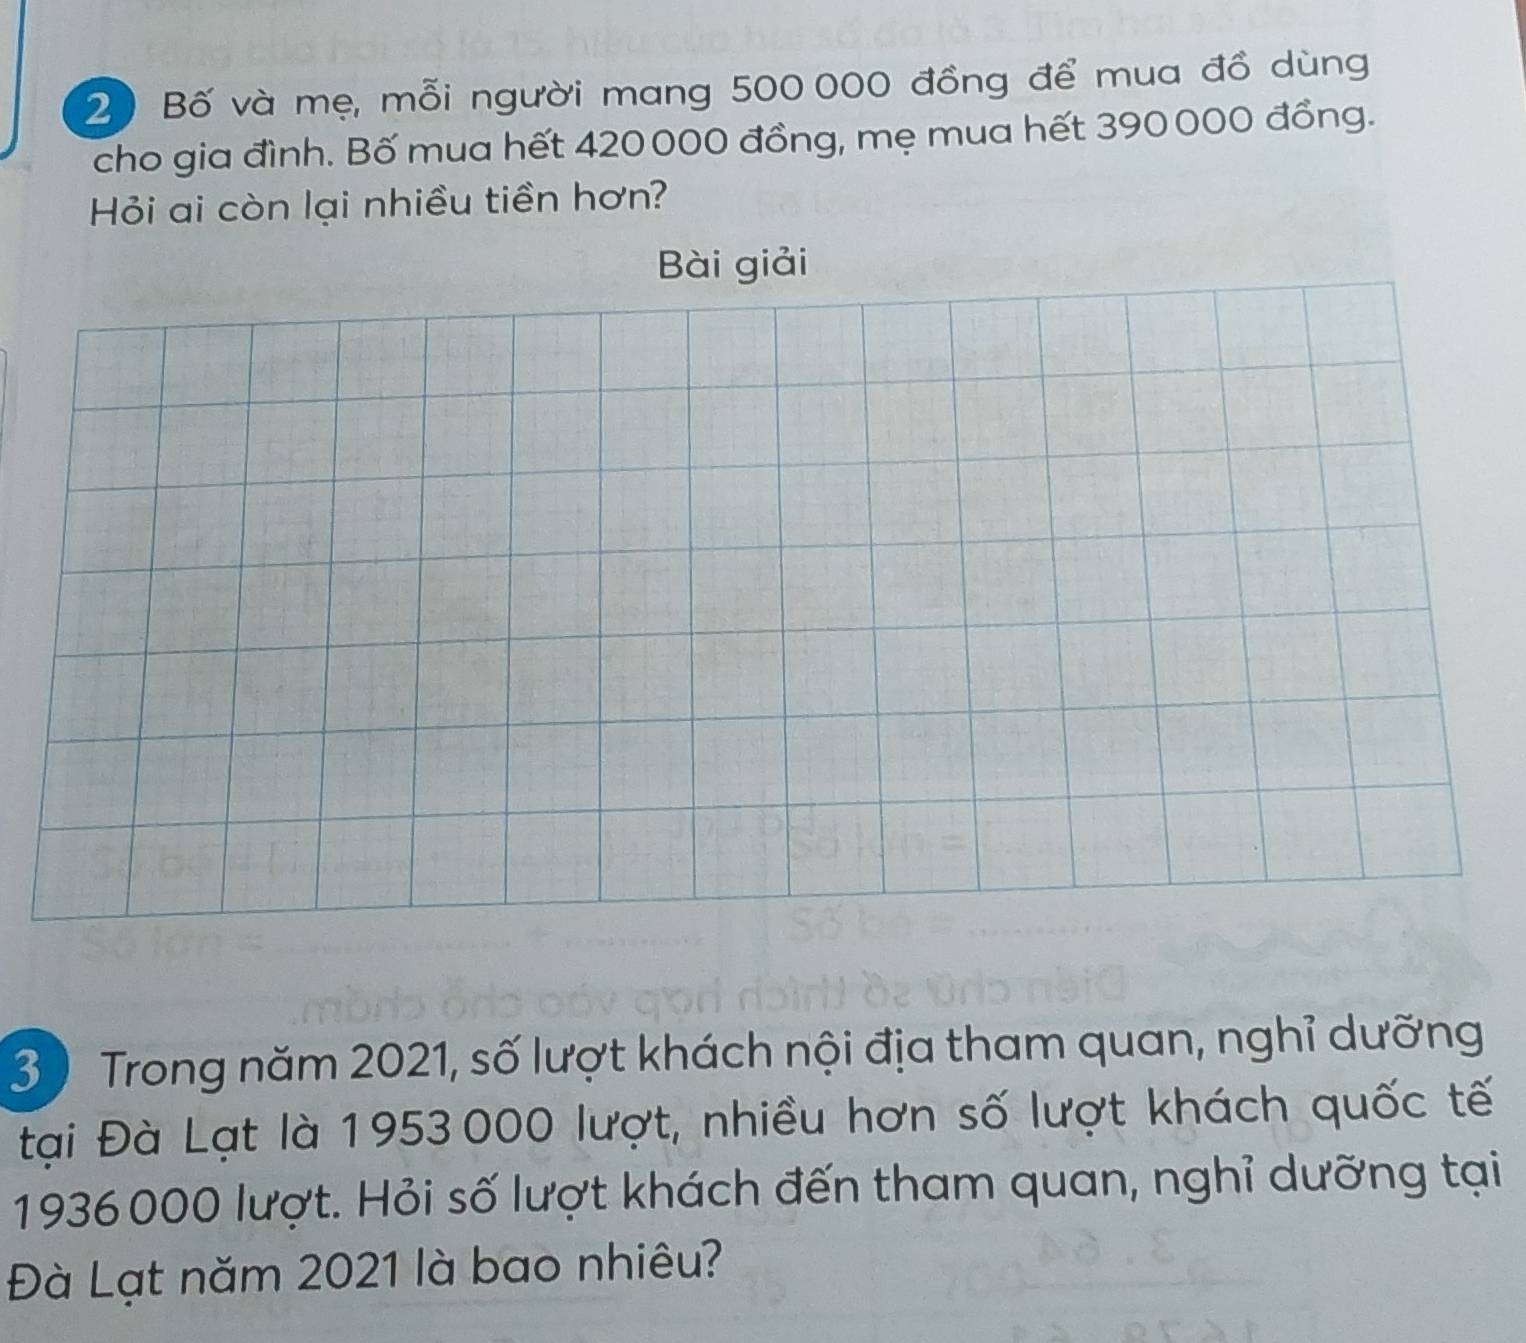 2 Bố và mẹ, mỗi người mang 500 000 đồng để mua đồ dùng
cho gia đình. Bố mua hết 420 000 đồng, mẹ mua hết 390 000 đồng.
Hỏi ai còn lại nhiều tiền hơn?
Bài giải
3 Trong năm 2021, số lượt khách nội địa tham quan, nghỉ dưỡng
tại Đà Lạt là 1 953 000 lượt, nhiều hơn số lượt khách quốc tế
1 936 000 lượt. Hỏi số lượt khách đến tham quan, nghỉ dưỡng tại
Đà Lạt năm 2021 là bao nhiêu?